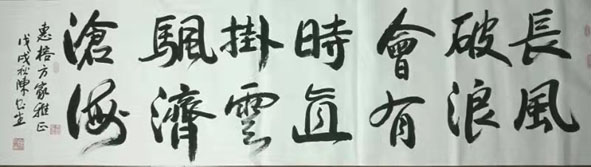 長風
破浪
會有
時直
掛雲
颿濟
滄海
惠榕方家雅正
戊戌松陳